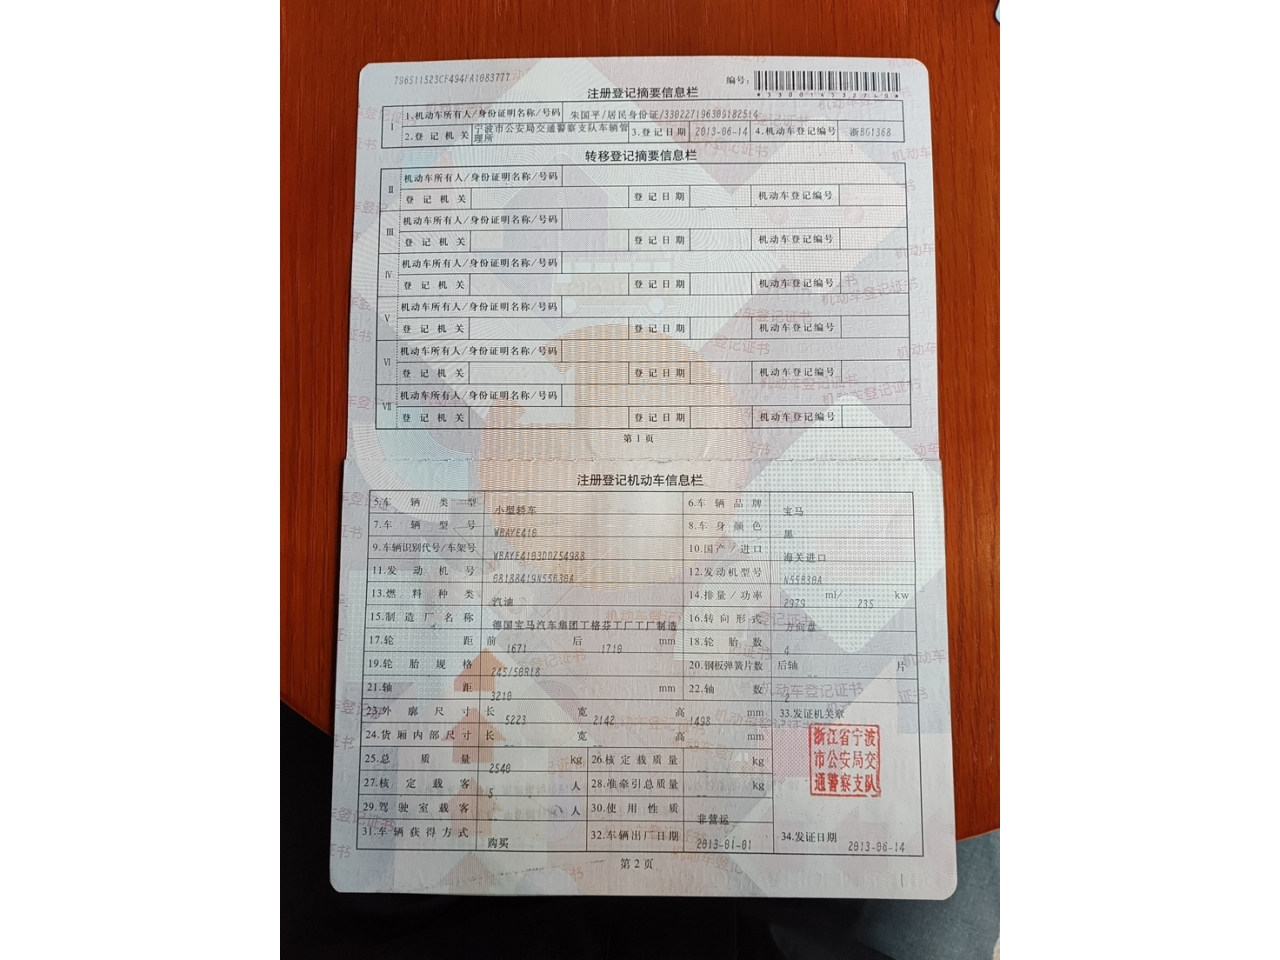 796511523CF494FA1083777
编号:
*330014532740*
注册登记摘要信息栏
Ⅰ 1.机动车所有人/身份证明名称/号码 朱国平/居民身份证/330227196309182514
2.登记机关 宁波市公安局交通警察支队车辆管理所 3.登记日期 2013-06-14 4.机动车登记编号 浙BG1368
转移登记摘要信息栏
Ⅱ 机动车所有人/身份证明名称/号码
登记机关 登记日期 机动车登记编号
Ⅲ 机动车所有人/身份证明名称/号码
登记机关 登记日期 机动车登记编号
Ⅳ 机动车所有人/身份证明名称/号码
登记机关 登记日期 机动车登记编号
Ⅴ 机动车所有人/身份证明名称/号码
登记机关 登记日期 机动车登记编号
Ⅵ 机动车所有人/身份证明名称/号码
登记机关 登记日期 机动车登记编号
Ⅶ 机动车所有人/身份证明名称/号码
登记机关 登记日期 机动车登记编号
第1页
注册登记机动车信息栏
5.车辆类型 小型轿车 6.车辆品牌 宝马
7.车辆型号 WBAYE410 8.车身颜色 黑
9.车辆识别代号/车架号 WBAYE4103DDZ54988 10.国产/进口 海关进口
11.发动机号 08188419N55B30A 12.发动机型号 N55B30A
13.燃料种类 汽油 14.排量/功率 2979 ml/ 235 kw
15.制造厂名称 德国宝马汽车集团丁格芬工厂工厂制造 16.转向形式 方向盘
17.轮距 前 1671 后 1710 mm 18.轮胎数 4
19.轮胎规格 245/50R18 20.钢板弹簧片数 后轴 片
21.轴距 3210 mm 22.轴数 2
23.外廓尺寸 长 5223 宽 2142 高 1498 mm 33.发证机关章
24.货厢内部尺寸 长 -- 宽 -- 高 -- mm
25.总质量 2540 kg 26.核定载质量 -- kg
27.核定载客 5 人 28.准牵引总质量 -- kg
29.驾驶室载客 -- 人 30.使用性质 非营运
31.车辆获得方式 购买 32.车辆出厂日期 2013-01-01 34.发证日期 2013-06-14
浙江省宁波
市公安局交
通警察支队
第2页